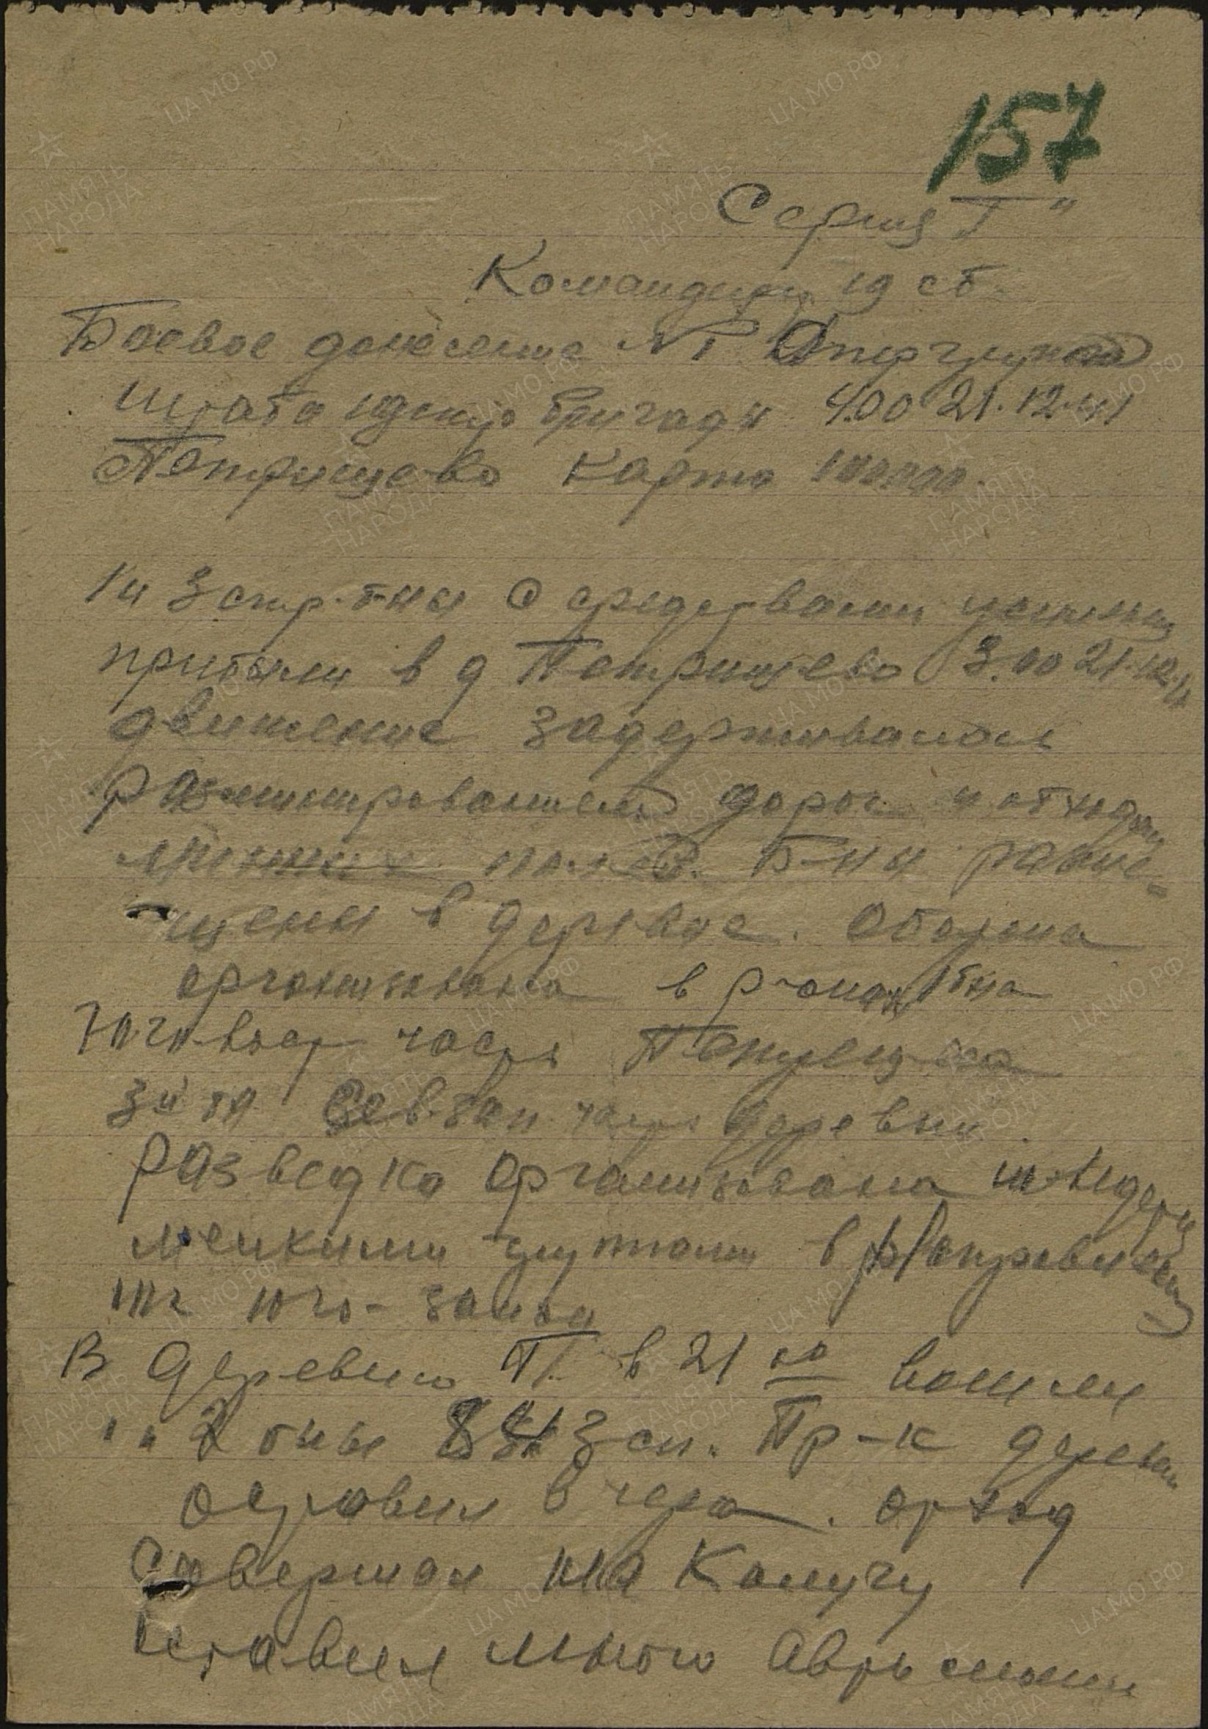 157
Серия "Г"
Командиру 19 сб.
Боевое донесение №1 Опергруппа
штаба 19 стр бригады 4.00 21.12.41
Петрищево карта 100000.
1 и 3 стр. б-ны с средствами усиления
прибыли в д Петрищево 3.00 21.12.41
движение задерживалось
разминированием дорог и обходом
минных полей. Б-ны разме-
щены в деревне. Оборона
организована в р-онах 1 бна
Юго-вост часть Петрищева
3й бн Сев. зап. часть деревни.
Разведка организована
мелкими группами в направлении
на юго-запад
В деревню П. в 21 00 вошли
1 и 2 бны сп. Пр-к деревню
оставил вчера. отход
совершал на Калугу
оставил много автомашин